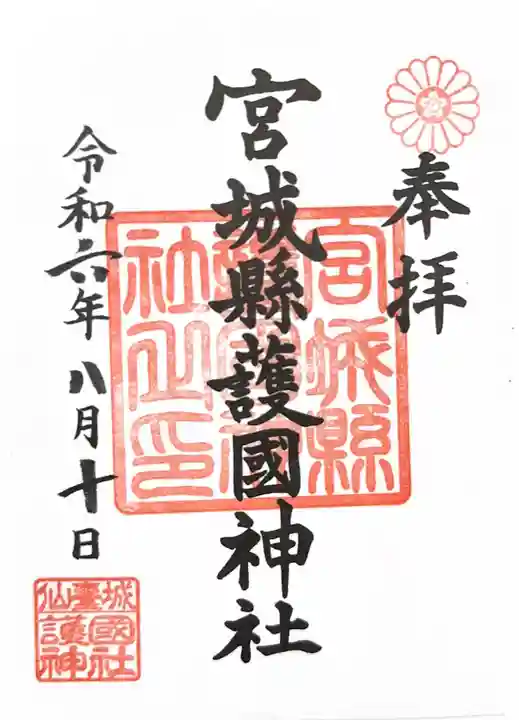 奉拝
宮城縣護國神社
令和六年八月十日
宮城縣護國神社之印
仙臺城護國神社